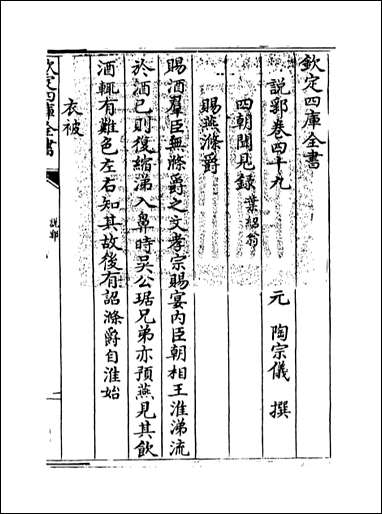 欽定四庫全書
說郛卷四十九
元 陶宗儀 撰
四朝聞見録 葉紹翁
賜燕滌爵
賜酒羣臣無滌爵之文孝宗賜宴内臣朝相王淮涕流
於酒已則復縮涕入鼻時吳公琚兄弟亦預燕見其飲
酒輒有難色左右知其故後有詔滌爵自淮始
衣被
欽定四庫全書
說郛